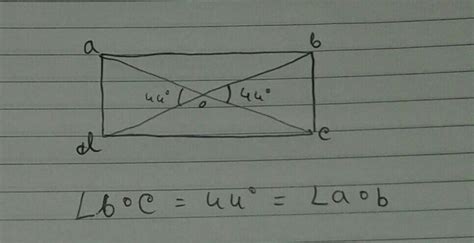 a b
44° 44°
o
d c
∠boc = 44° = ∠aob